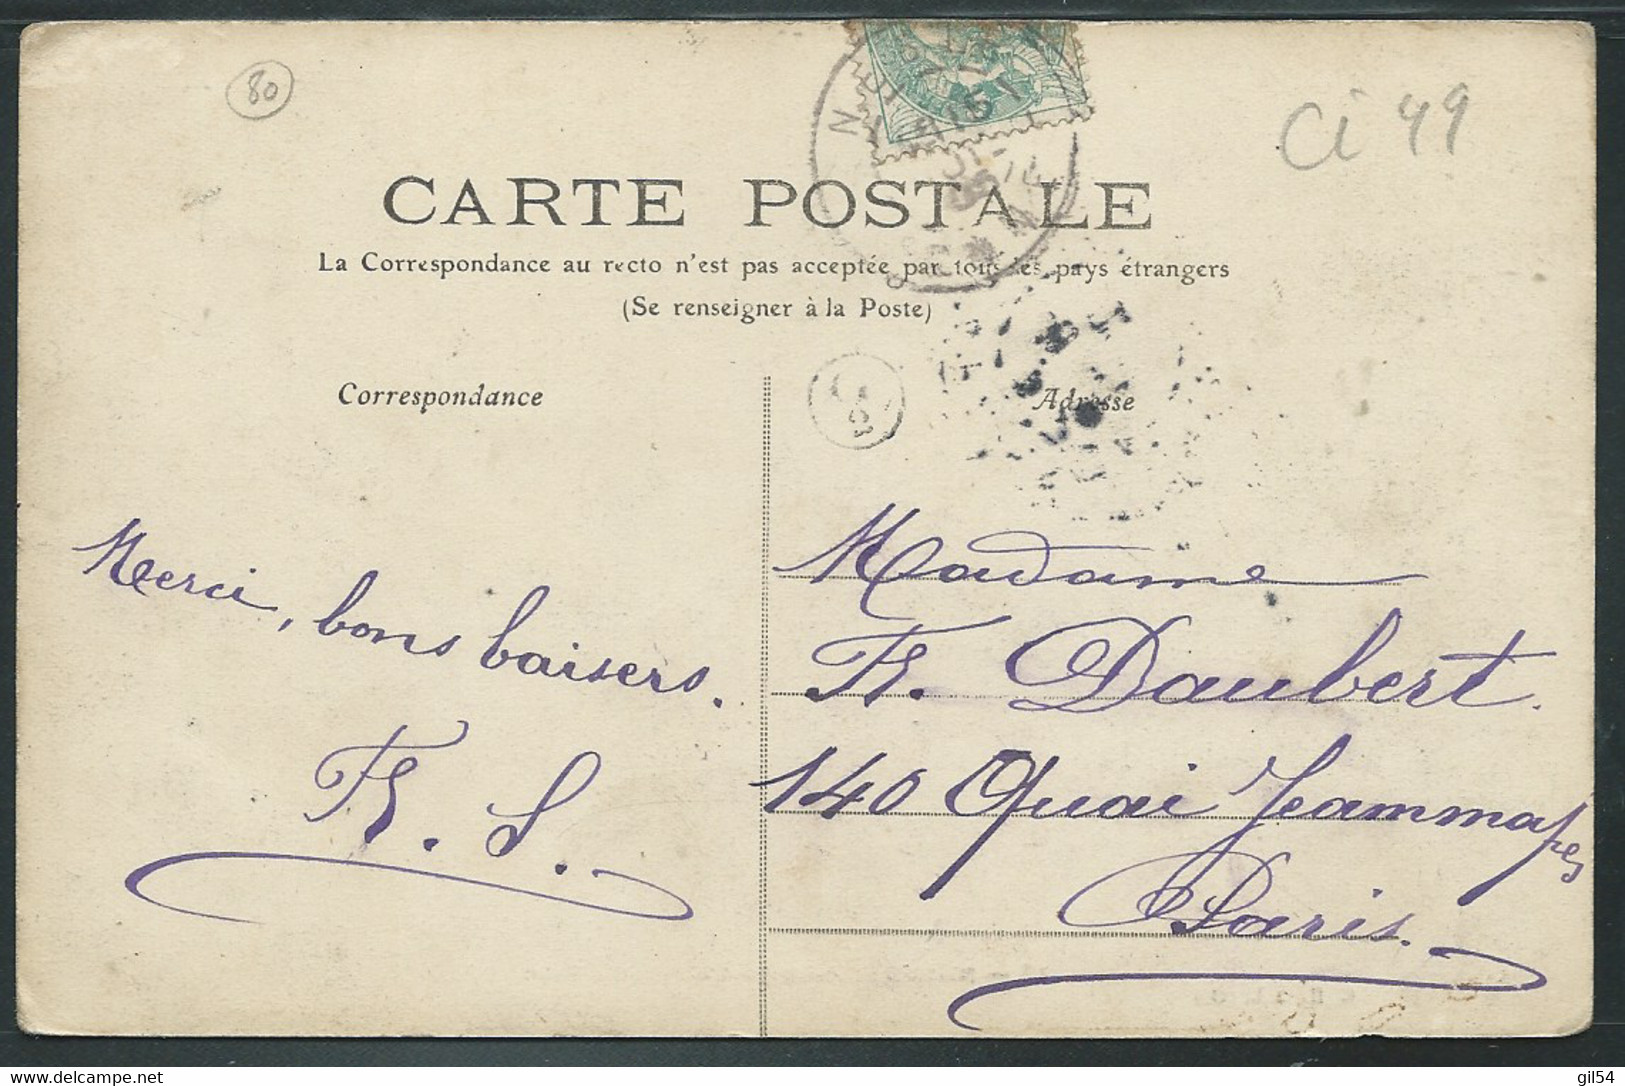 80
Ci 49
CARTE POSTALE
La Correspondance au recto n'est pas acceptée par tous les pays étrangers
(Se renseigner à la Poste)
Correspondance
Adresse
Merci, bons baisers.
R. S.
Madame
R. Daubert.
140 Quai Jeammapes
Paris.
gil54